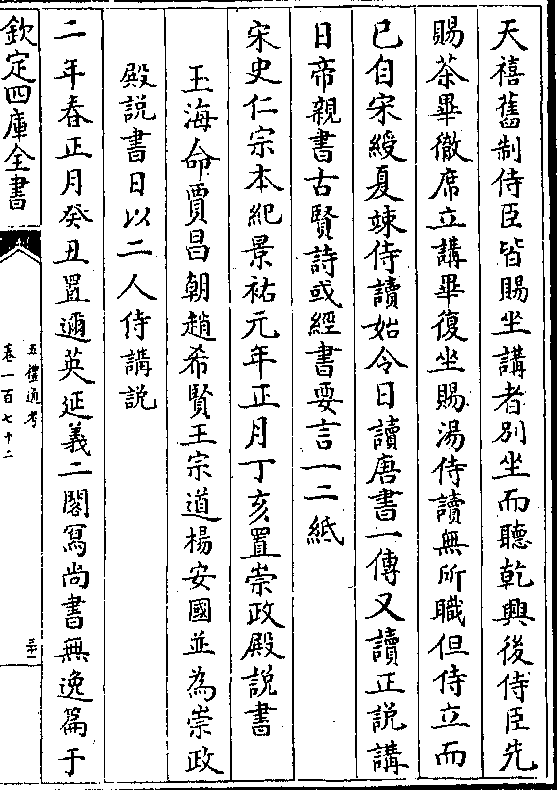 天禧舊制侍臣皆賜坐講者別坐而聽乾興後侍臣先
賜茶畢徹席立講畢復坐賜湯侍讀無所職但侍立而
已自宋綬夏竦侍讀始令日讀唐書一傳又讀正説講
日帝親書古賢詩或經書要言一二紙
宋史仁宗本紀景祐元年正月丁亥置崇政殿説書
玉海命賈昌朝趙希賢王宗道楊安國並為崇政
殿説書日以二人侍講説
二年春正月癸丑置邇英延義二閣寫尚書無逸篇于
欽定四庫全書
五禮通考
卷一百七十二